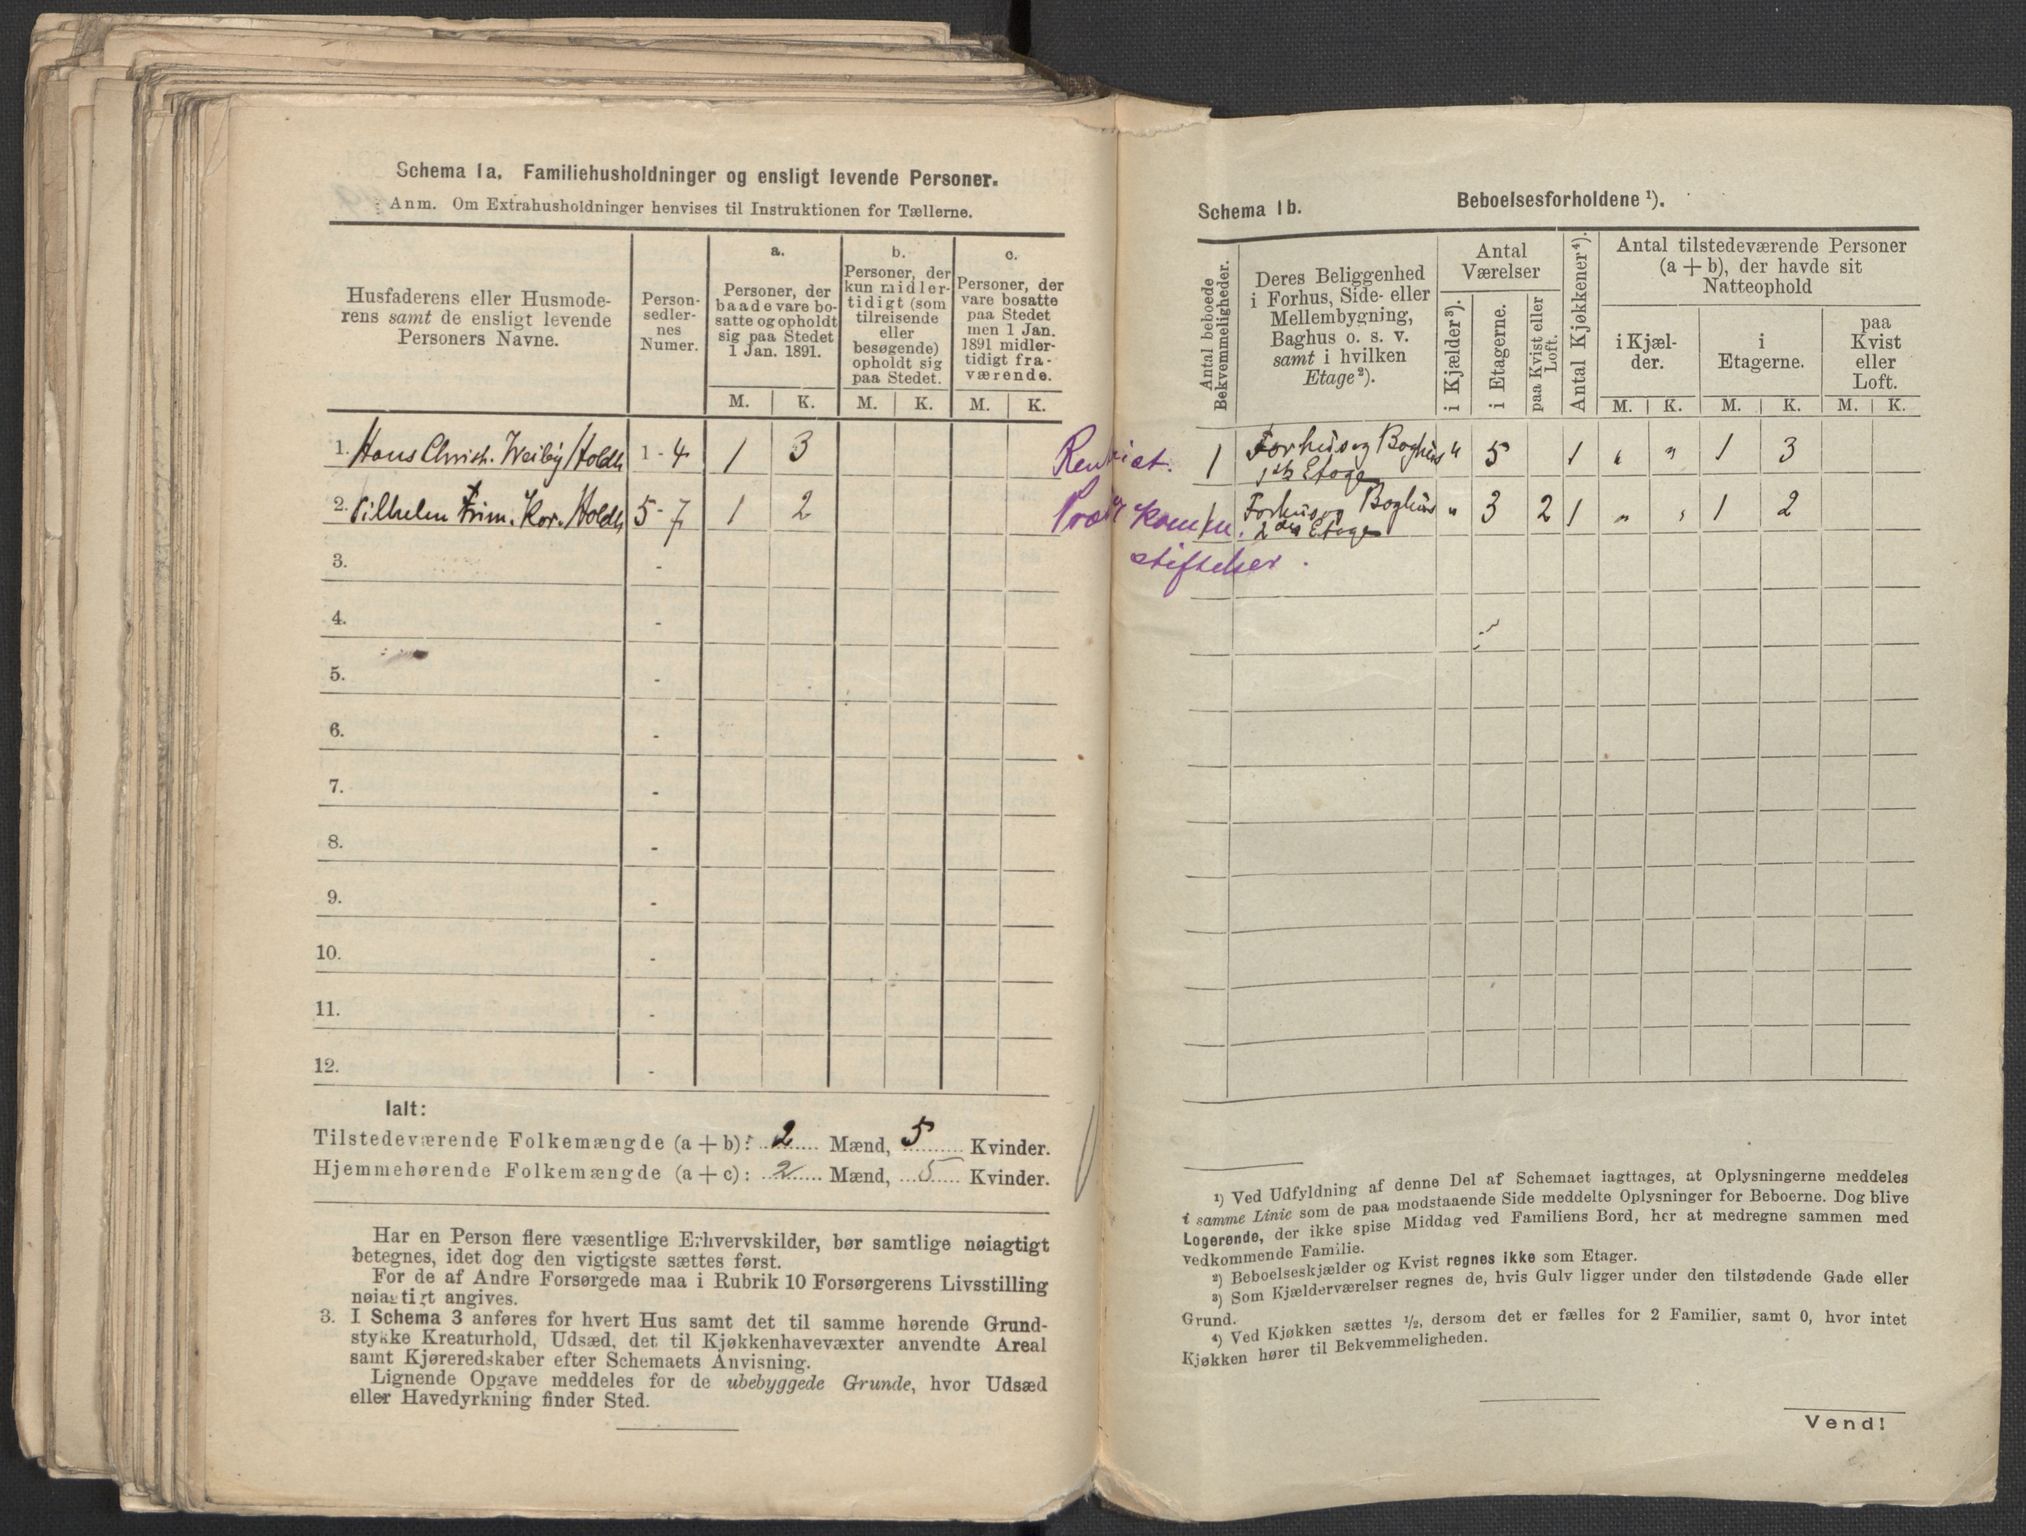 Schema 1a. Familiehusholdninger og ensligt levende Personer.
Anm. Om Extrahusholdninger henvises til Instruktionen for Tællerne.
Husfaderens eller Husmode-
rens samt de ensligt levende
Personers Navne.
Person-
sedler-
nes
Numer.
a.
Personer, der
baade vare bo-
satte og opholdt
sig paa Stedet
1 Jan. 1891.
b.
Personer, der
kun midler-
tidigt (som
tilreisende
eller
besøgende)
opholdt sig
paa Stedet.
c.
Personer, der
vare bosatte
paa Stedet
men 1 Jan.
1891 midler-
tidigt fra-
værende.
M. K. M. K. M. K.
1. Hans Christ. Weiby Holdt 1 - 4 1 3
2. Vilhelm Kor. Holdt 5 - 7 1 2
3. -
4. -
5. -
6. -
7. -
8. -
9. -
10. -
11. -
12. -
Ialt:
Tilstedeværende Folkemængde (a + b): 2 Mænd, 5 Kvinder.
Hjemmehørende Folkemængde (a + c): 2 Mænd, 5 Kvinder.
Har en Person flere væsentlige Erhvervskilder, bør samtlige nøiagtigt
betegnes, idet dog den vigtigste sættes først.
For de af Andre Forsørgede maa i Rubrik 10 Forsørgerens Livsstilling
nøiagtigt angives.
3. I Schema 3 anføres for hvert Hus samt det til samme hørende Grund-
stykke Kreaturhold, Udsæd, det til Kjøkkenhavevæxter anvendte Areal
samt Kjøreredskaber efter Schemaets Anvisning.
Lignende Opgave meddeles for de ubebyggede Grunde, hvor Udsæd
eller Havedyrkning finder Sted.
Schema 1b. Beboelsesforholdene ¹).
Antal beboede
Bekvemmeligheder.
Deres Beliggenhed
i Forhus, Side- eller
Mellembygning,
Baghus o. s. v.
samt i hvilken
Etage²).
Antal
Værelser
i Kjælder³).
i Etagerne.
paa Kvist eller
Loft.
Antal Kjøkkener⁴).
Antal tilstedeværende Personer
(a + b), der havde sit
Natteophold
i Kjæl-
der.
i
Etagerne.
paa
Kvist
eller
Loft.
M. K. M. K. M. K.
Rentiat. 1 Forhus og Baghus " 5 1 " " 1 3
1ste Etage
komm. 1 Forhus og Baghus " 3 2 1 " " 1 2
2den Etage
stiftelser.
¹) Ved Udfyldning af denne Del af Schemaet iagttages, at Oplysningerne meddeles
i samme Linie som de paa modstaaende Side meddelte Oplysninger for Beboerne. Dog blive
Logerende, der ikke spise Middag ved Familiens Bord, her at medregne sammen med
vedkommende Familie.
²) Beboelseskjælder og Kvist regnes ikke som Etager.
³) Som Kjælderværelser regnes de, hvis Gulv ligger under den tilstødende Gade eller
Grund.
⁴) Ved Kjøkken sættes ½, dersom det er fælles for 2 Familier, samt 0, hvor intet
Kjøkken hører til Bekvemmeligheden.
Vend!